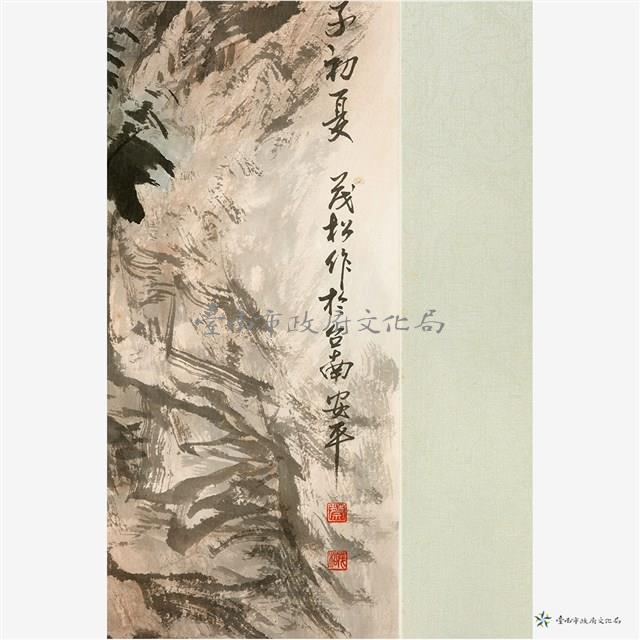 子初夏 茂松作於台南安平
臺南市政府文化局
臺南市政府文化局